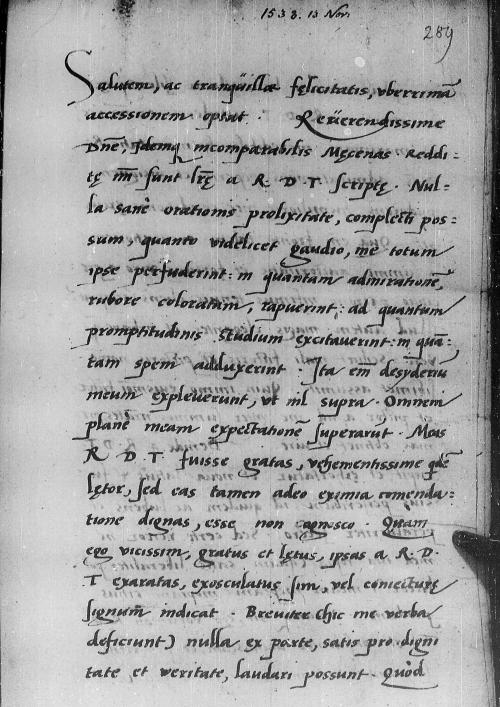 1538. 13 Nov.
289
Salutem, ac tranquillæ fęlicitatis, vberrimā
accessionem optat. Reuerendissime
Dnē, Idemq incomparabilis Męcenas. Reddi:
tę mī sunt lrę a R. D. T. scriptę. Nul=
la sanè orationis prolixitate, complecti pos=
sum quanto videlicet gaudio, me totum
ipse perfuderint: in quantam admirationē,
rubore coloratam, rapuerint: ad quantum
promptitudinis studium excitauerint: in quā=
tam spem adduxerint: Ita em̄ desyderiū
meum expleuerunt, vt nil supra. Omnem
planè meam expectationē superarūt. Meas
R D T fuisse gratas, vehementissime qdē
lętor, sed eas tamen adeo eximia comenda=
tione dignas, esse non agnosco. Quàm
ego vicissim, gratus et lętus, ipsas a R. D.
T exaratas, exosculatus sim, vel coniecturę
signum̄ indicat. Breuiter (hic me verba
deficiunt) nulla ex parte, satis pro digni
tate et veritate, laudari possunt. Quòd